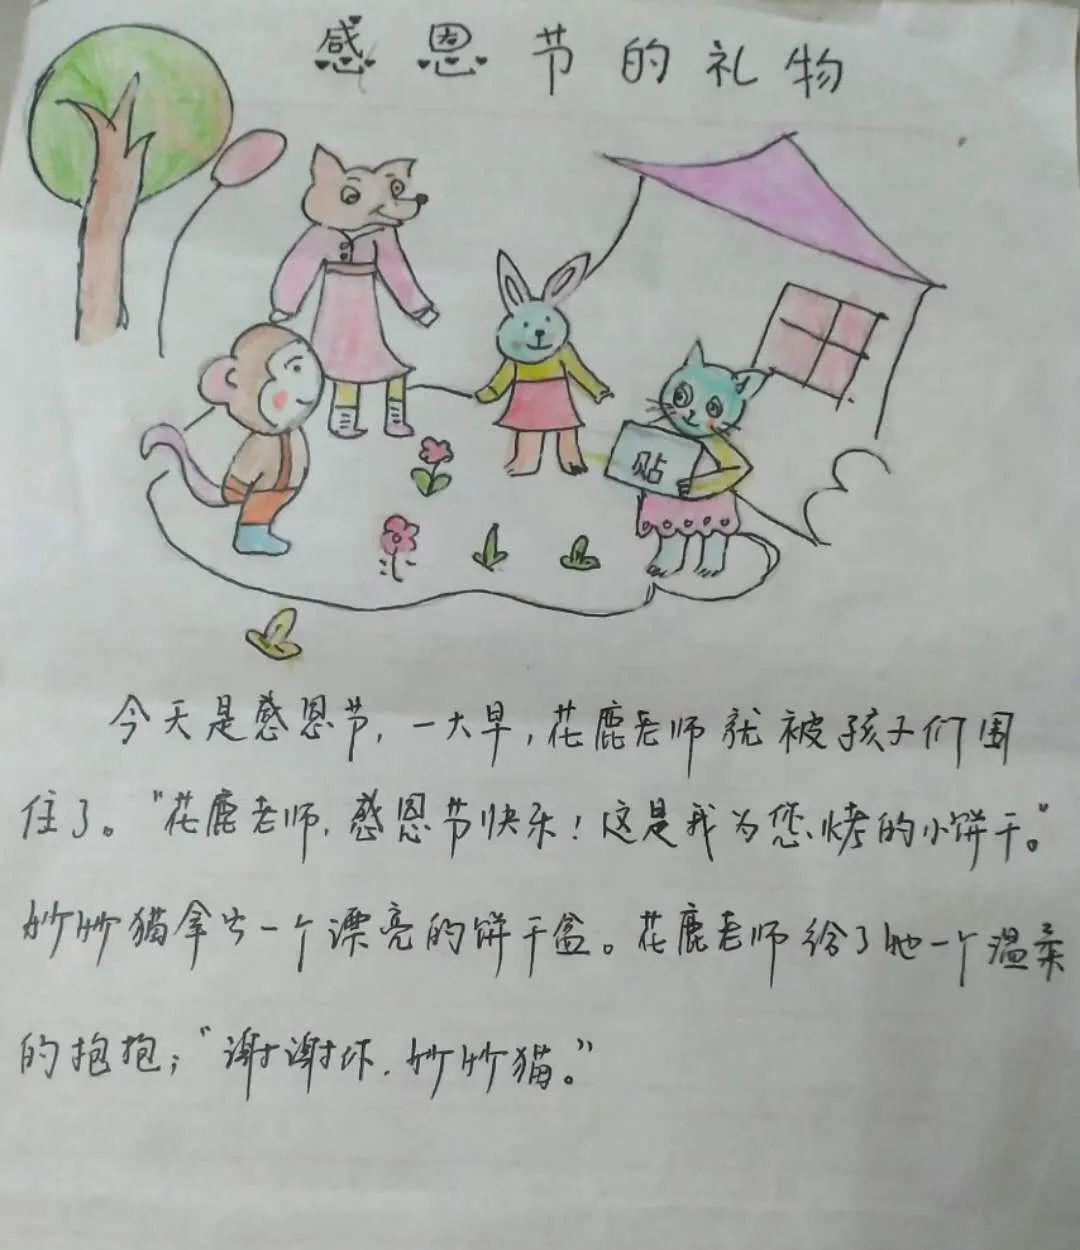 感恩节的礼物
贴
今天是感恩节，一大早，花鹿老师就被孩子们围
住了。“花鹿老师，感恩节快乐！这是我为您烤的小饼干。”
妙妙猫拿出一个漂亮的饼干盒。花鹿老师给了她一个温柔
的抱抱；“谢谢你，妙妙猫。”